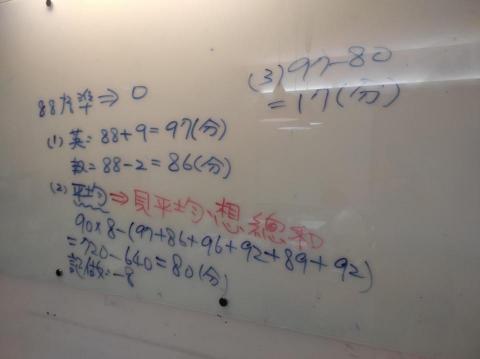 88為準⇒0
(1) 英=88+9=97(分)
數=88-2=86(分)
(2) 平均⇒見平均、想總和
90×8-(97+86+96+92+89+92)
=720-640=80(分)
記做:-8
(3) 97-80
=17(分)